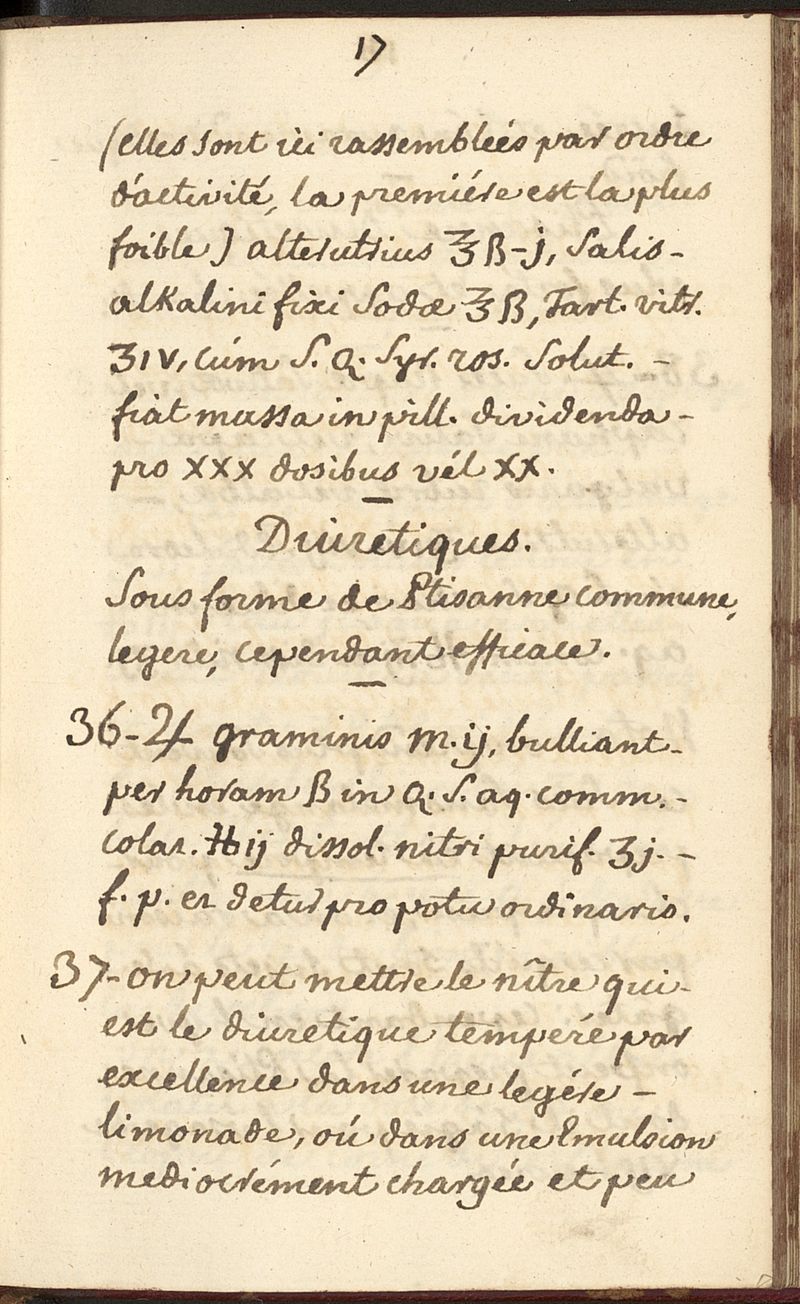 17
(elles sont ici rassembleés par ordre
d'activité, la premiére est la plus
foible) alterutrius ℥ ß-j, Salis-
alkalini fixi Sodæ ℥ ß, Tart. vitr.
ʒIV, cúm S. Q. Syr. ros. Solut. -
fiat massa in pill. dividenda-
pro XXX dosibus vél XX.
Diuretiques.
Sous forme de Ptisanne commune,
legere, cependant efficace.
36-♃ graminis m.ij, bulliant-
per horam ß in Q. S. aq. comm.-
colat. ℔ ij dissol. nitri purif. ʒj. -
f. p. et detur pro potu ordinario.
37-on peut mettre le nître qui-
est le diuretique temperé par
excellence dans une legére -
limonade, oú dans une Emulsion
mediocrément chargée et peu